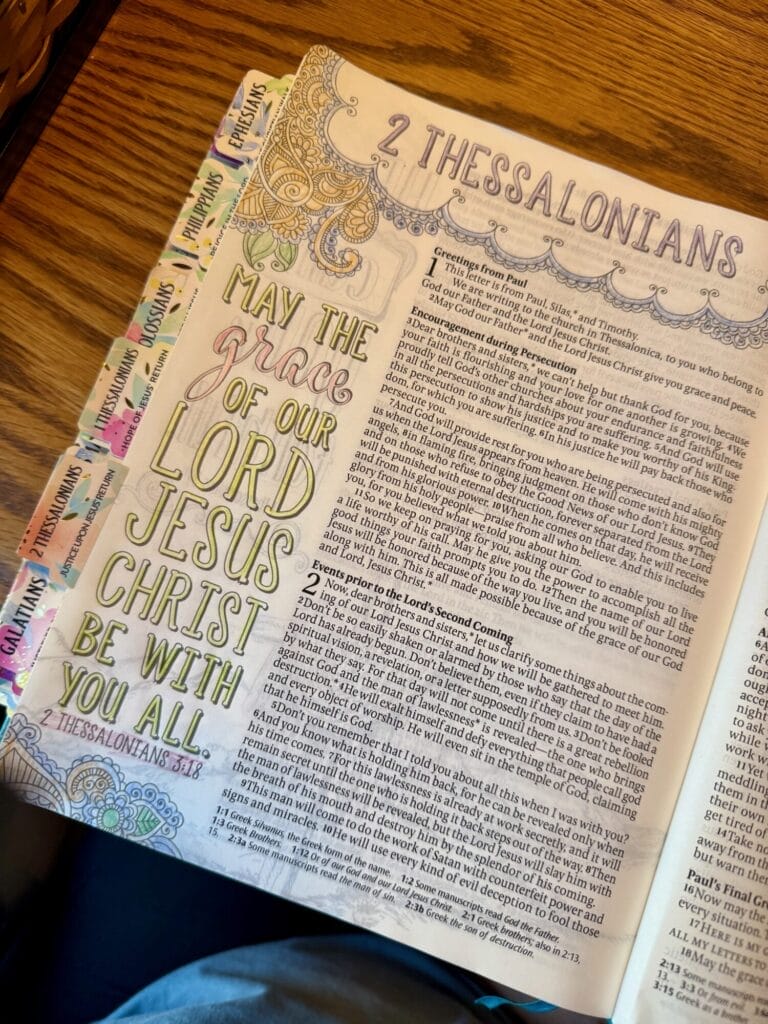 EPHESIANS
PHILIPPIANS
OLOSSIANS
1 THESSALONIANS
-HOPE OF JESUS' RETURN
2 THESSALONIANS
JUSTICE UPON JESUS' RETURN
GALATIANS
2 THESSALONIANS
MAY THE
grace
OF OUR
LORD
JESUS
CHRIST
BE WITH
YOU ALL.
2 THESSALONIANS 3:18
Greetings from Paul
1 This letter is from Paul, Silas,* and Timothy.
We are writing to the church in Thessalonica, to you who belong to
God our Father and the Lord Jesus Christ.
2May God our Father* and the Lord Jesus Christ give you grace and peace.
Encouragement during Persecution
3Dear brothers and sisters,* we can't help but thank God for you, because
your faith is flourishing and your love for one another is growing. 4We
proudly tell God's other churches about your endurance and faithfulness
in all the persecutions and hardships you are suffering. 5And God will use
this persecution to show his justice and to make you worthy of his King-
dom, for which you are suffering. 6In his justice he will pay back those who
persecute you.
7And God will provide rest for you who are being persecuted and also for
us when the Lord Jesus appears from heaven. He will come with his mighty
angels, 8in flaming fire, bringing judgment on those who don't know God
and on those who refuse to obey the Good News of our Lord Jesus. 9They
will be punished with eternal destruction, forever separated from the Lord
and from his glorious power. 10When he comes on that day, he will receive
glory from his holy people—praise from all who believe. And this includes
you, for you believed what we told you about him.
11So we keep on praying for you, asking our God to enable you to live
a life worthy of his call. May he give you the power to accomplish all the
good things your faith prompts you to do. 12Then the name of our Lord
Jesus will be honored because of the way you live, and you will be honored
along with him. This is all made possible because of the grace of our God
and Lord, Jesus Christ.*
Events prior to the Lord's Second Coming
2 Now, dear brothers and sisters,* let us clarify some things about the com-
ing of our Lord Jesus Christ and how we will be gathered to meet him.
2Don't be so easily shaken or alarmed by those who say that the day of the
Lord has already begun. Don't believe them, even if they claim to have had a
spiritual vision, a revelation, or a letter supposedly from us. 3Don't be fooled
by what they say. For that day will not come until there is a great rebellion
against God and the man of lawlessness* is revealed—the one who brings
destruction.* 4He will exalt himself and defy everything that people call god
and every object of worship. He will even sit in the temple of God, claiming
that he himself is God.
5Don't you remember that I told you about all this when I was with you?
6And you know what is holding him back, for he can be revealed only when
his time comes. 7For this lawlessness is already at work secretly, and it will
remain secret until the one who is holding it back steps out of the way. 8Then
the man of lawlessness will be revealed, but the Lord Jesus will slay him with
the breath of his mouth and destroy him by the splendor of his coming.
9This man will come to do the work of Satan with counterfeit power and
signs and miracles. 10He will use every kind of evil deception to fool those
1:1 Greek Silvanus, the Greek form of the name. 1:2 Some manuscripts read God the Father.
1:3 Greek Brothers. 1:12 Or of our God and our Lord Jesus Christ. 2:1 Greek brothers; also in 2:13,
15. 2:3a Some manuscripts read the man of sin. 2:3b Greek the son of destruction.
night
to ask
while
work w
1Yet
meddling
them in th
their own
get tired of
14Take no
away from the
but warn the
Paul's Final Gr
16Now may the
every situation. T
17HERE IS MY G
ALL MY LETTERS TO
18May the grace
2:13 Some manuscripts
13. 3:3 Or from evil.
3:15 Greek as a brother.